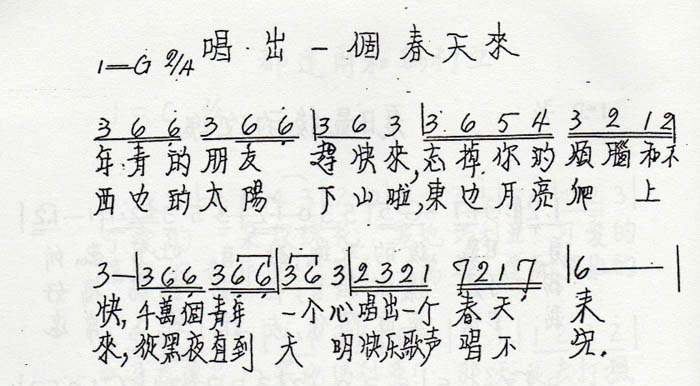 唱出一個春天來
1=G 2/4
3 6 6 3 6 6 |3 6 3 |3 6 5 4 3 2 1 2
年青的朋友 趕快來,忘掉你的煩腦和不
西边的太陽 下山啦,東边月亮爬上
3—|3 6 6 3 6 6|3 6 3|2 3 2 1 7 2 1 7 |6———|
快,千萬個青年 一个心唱出一个春天 来
來,從黑夜直到 天 明快乐歌声唱不 完.